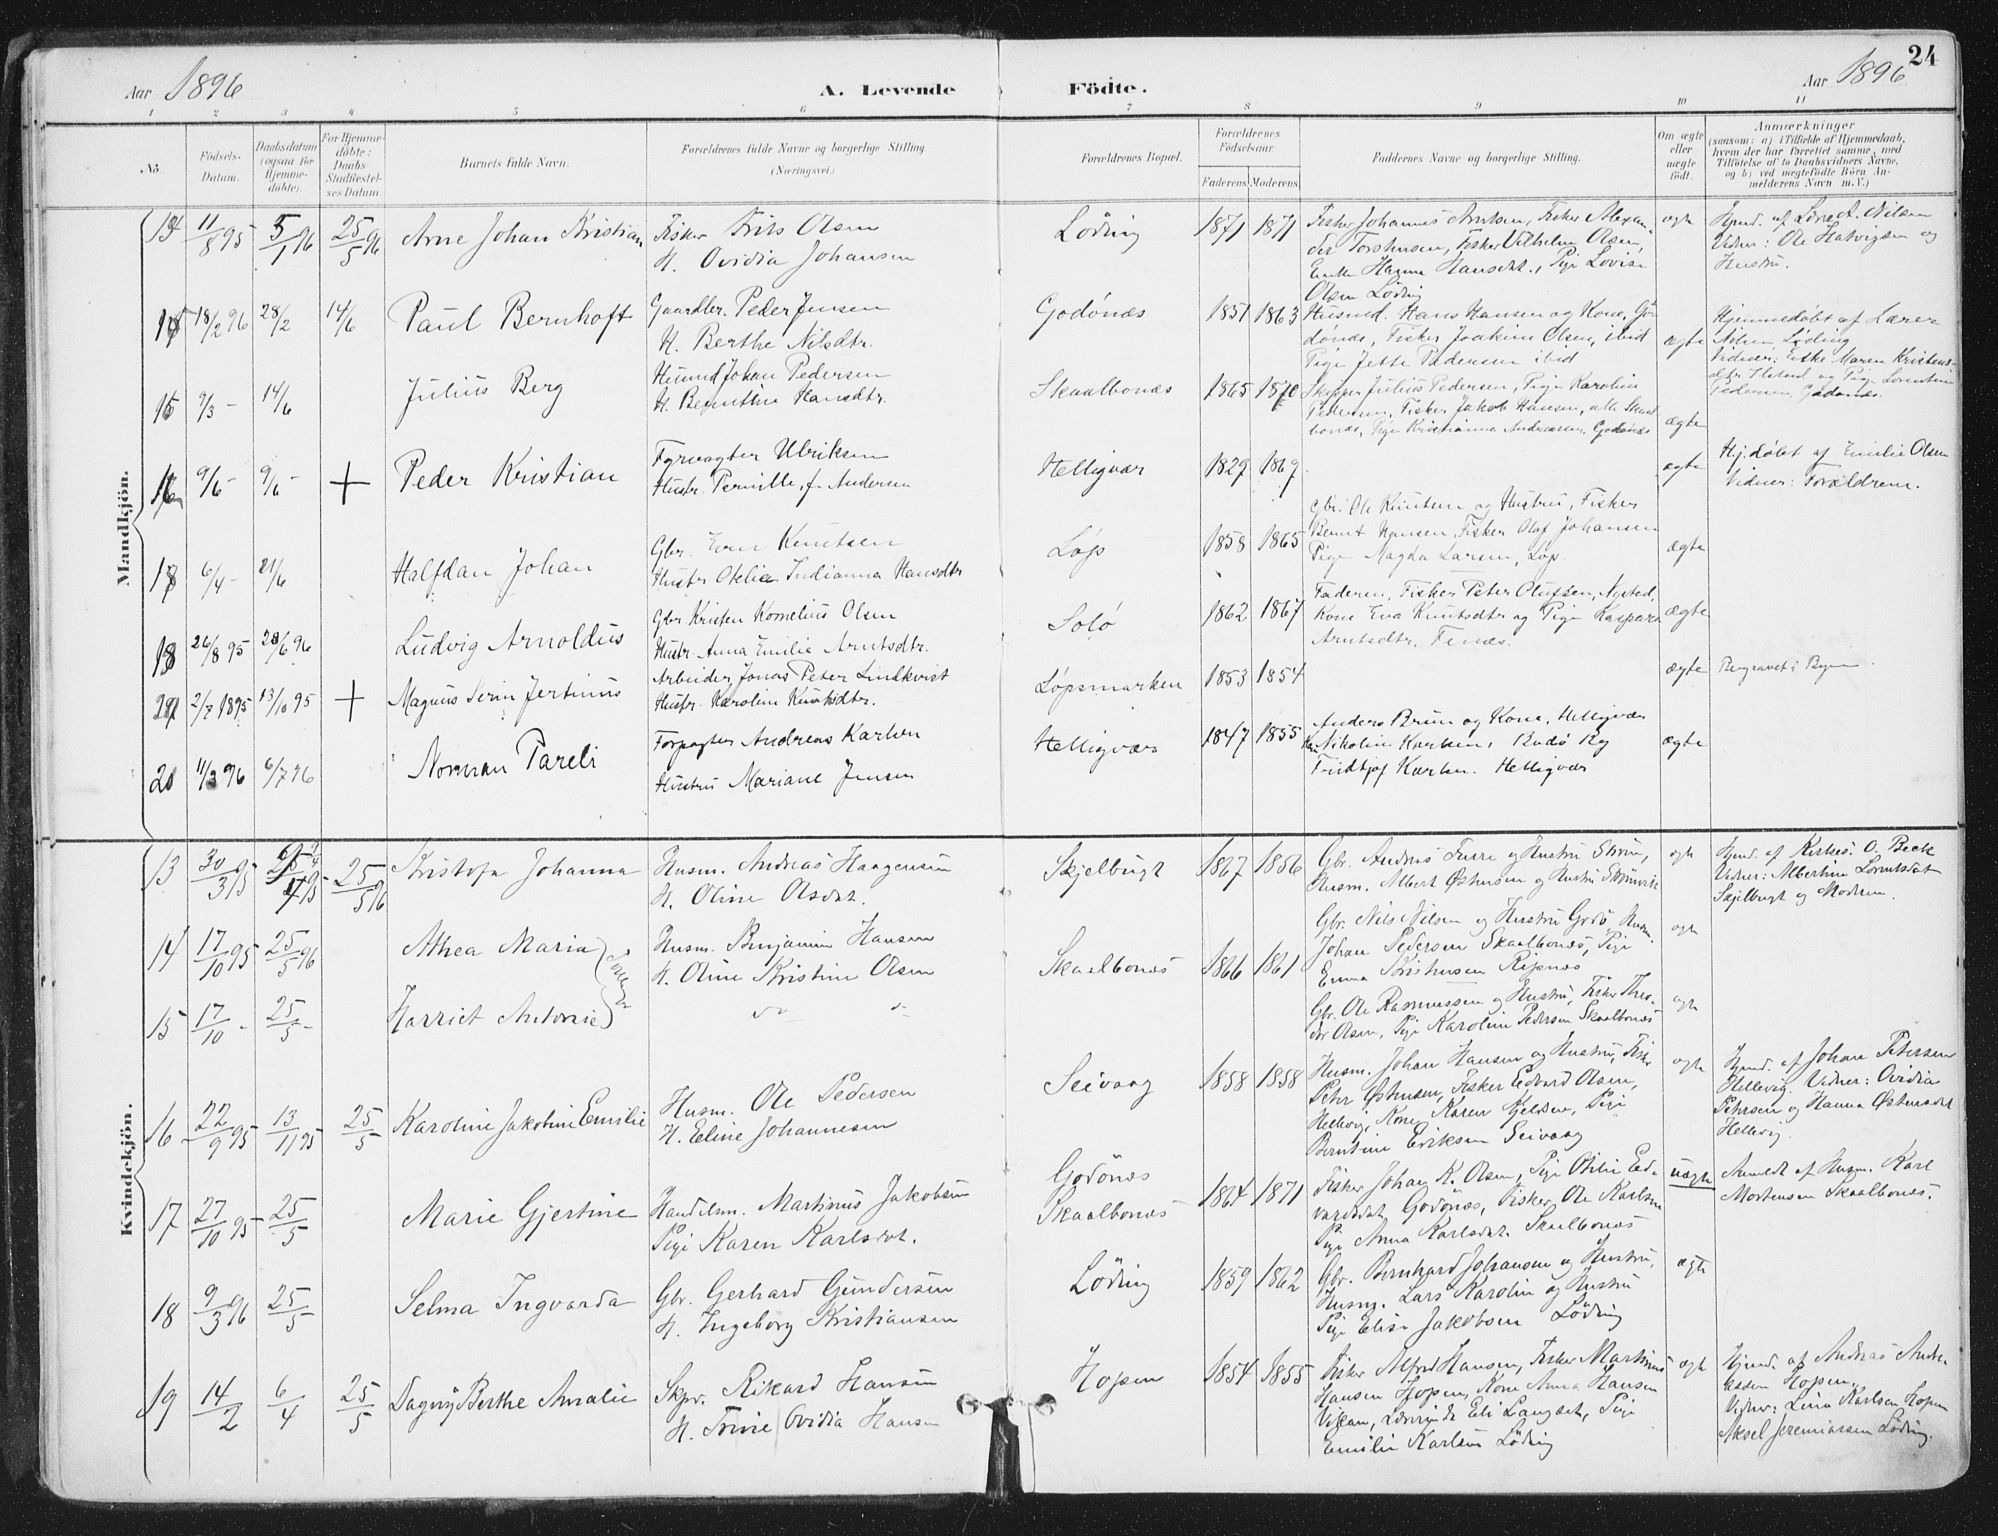 24
Aar 1896
A. Levende Födte.
Aar 1896
1 2 3 4 5 6 7 8 9 10 11
No.
Födsels-Datum.
Daabsdatum (ogsaa for Hjemmedöbte).
For Hjemmedöbte: Daabs Stadfæstelses Datum.
Barnets fulde Navn.
Forældrenes fulde Navne og borgerlige Stilling.
(Næringsvei.)
Forældrenes Bopæl.
Forældrenes Födselsaar.
Faderens. Moderens.
Faddernes Navne og borgerlige Stilling.
Om ægte eller uægte födt.
Anmærkninger
(saasom: a) i Tilfælde af Hjemmedaab, hvem der har forrettet samme, med Tilföielse af to Daabsvidners Navne, og b) ved uægtefödte Börn Anmelderens Navn m. V.)
Mandkjön.
11/8 95 5/1 96 25/5 96 Arne Johan Kristian
Fisker Frits Olsen
H. Ovidia Johansen
Löding 1871 1871
Fisker Johannes Arntsen, Fisker Alexan-
der Torstensen, Fisker Vilhelm Olsen,
Enke Hanna Hansdat., Pige Lovise
Olsen Löding
ægte
Hjemd. af Lens A. Nilsen
Vidner: Ole Hatvigsen og
Hustru.
18/2 96 28/2 14/6 Paul Bernhoft
Gaardbr. Peder Jensen
H. Berthe Nilsdtr.
Godönæs 1851 1863
Husmd. Hans Hansen og Kone, Go-
dönæs, Fisker Joakim Olsen, ibid
Pige Jette Pedersen ibid
ægte
Hjemmedøbt af Lærer
Nilsen, Løding
Vidner: Enke Maren Kristens-
15 9/3 - 14/6 Julius Berg
Husmd Johan Pedersen
H. Berntine Hansdtr.
Skaalbonæs 1865 1870
Skipper Julius Pedersen, Pige Karolin
Pedersen, Fisker Jakob Hansen, alle Skaal-
bonæs, Pige Kristianna Andreasen, Godönæs
ægte
16 9/6 - 9/6 - + Peder Kristian
Fyrvogter Ulriksen
Hustr. Pernille, f. Andersen
Helligvær 1829 1869
ægte
Hj.døbt af Emilie Olsen
Vidner: Forældrene.
17 6/4 - 21/6 Halfdan Johan
Gbr. Even Knutsen
Hustr Otelie Indianna Hansdtr
Løp 1858 1865
Gbr. Ole Knutsen og Hustru, Fisker
Bernt Hansen, Fisker Olaf Johansen
Pige Magda Larsen, Løp.
ægte
18 26/8 95 28/6 96 Ludvig Arnoldus
Gbr Kristen Kornelius Olsen
Hustr. Anna Emilie Arntsdtr.
Solø 1862 1867
Faderen, Fisker Peter Olufsen, Nysted,
Kone Eva Knutsdtr og Pige Kaspara
Arntsdtr, Fenæs.
ægte
2/7 1895 13/10 95 + Magnus Serin Jertinus
Arbeider Jonas Peter Lindkvist
Hustr. Karoline Knutsdtr.
Løpsmarken 1853 1854
ægte
Begravet i Byen
20 11/3 96 6/7 96 Norman Pareli
Forpagter Andreas Karlsen
Hustru Mariane Jensen
Helligvær 1847 1855
Anders Bruun og Kone, Helligvær
Nikoline Karlsen, Bodø By
Fridtjof Karlsen. Helligvær
ægte
Kvindekjön.
13 30/3 95 25/5 96 Kristofa Johanna
Husm. Andreas Haagensen
H. Oline Olsdat.
Skjelbugt 1867 1856
Gbr. Andreas Furre og Hustru Skeun,
Husm. Albert Østensen og Hustru Skeunvik
ægte
Hjemd. af Kirkes. O. Beck
Vidner: Albertine Lorntsdat
Skjelbugt og Moderen.
14 17/10 95 25/5 96 Althea Maria
Husm. Benjamin Hansen
H. Oline Kristine Olsen
Skaalbonæs 1866 1861
Gbr. Nils Nilsen og Hustru Godö, Husm.
Johan Pedersen Skaalbonæs, Pige
Emma Kristensen Ripnæs
ægte
15 17/10 - 25/5 - Harriet Antonie
Gbr. Ole Rasmussen og Hustru, Fisker Theo-
dor Olsen, Pige Karoline Pedersen Skaalbonæs
ægte
16 22/9 95 13/11 95 25/5 Karoline Jakobine Emilie
Husm. Ole Pedersen
H. Eline Johannesen
Seivaag 1858 1858
Husm. Johan Hansen og Hustru, Fisker
Peter Østensen, Fisker Edvard Olsen,
Hellevig, Kone Karen Kjeldsen, Pige
Berntine Eriksen Seivaag
ægte
Hjemd. af Johan Petersen
Hellevig. Vidner: Ovidia
Petersen og Hanna Østensdat
Hellevig.
17 27/10 95 25/5 Marie Gjertine
Handelsm. Martinus Jakobsen
Pige Karen Karlsdat.
Godönæs
Skaalbonæs
1864 1871
Fisker Johan K. Olsen, Pige Otilie Ed-
vardsdat Godönæs, Fisker Ole Karlsen
Pige Anna Karlsdat. Skaalbonæs
uægte
Anmeldt af Husm. Karl
Mortensen Skaalbonæs.
18 9/3 96 25/5 Selma Ingvarda
Gbr. Gerhard Gundersen
H. Ingeborg Kristiansen
Löding 1859 1862
Gbr. Bernhard Johansen og Hustru,
Husm. Lars Karolin og Hustru
Pige Elise Jakobsen Löding
ægte
19 14/2 6/4 25/5 Dagny Berthe Amalie
Skpr. Rikard Hansen
H. Trine Ovidia Hansen
Hopen 1854 1855
Fisker Alfred Hansen, Fisker Martinus
Hansen Hopen, Kone Anna Hansen
Vikan, Lærerinde Eli Langset, Pige
Emilie Karlsen Löding
ægte
Hjemd. af Andreas Andre-
assen Hopen.
Vidner: Lina Karlsen Hopen
Aksel Jeremiassen Löding.